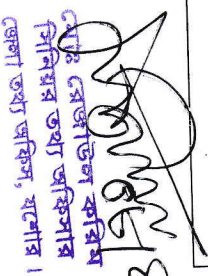 মোঃ রেজাউল করিম
সিনিয়র তথ্য অফিসার
জেলা তথ্য অফিস, যশোর।